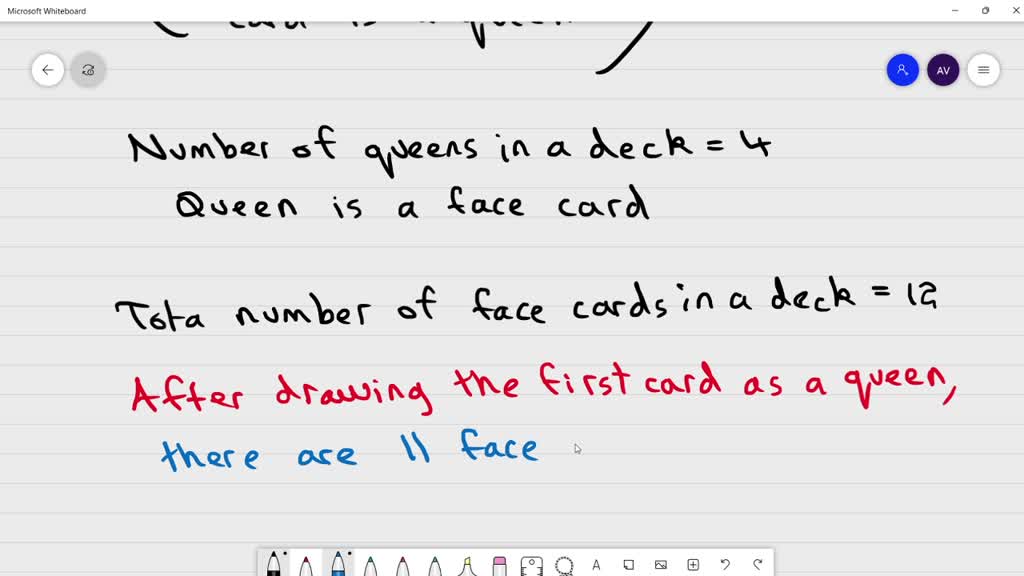 Microsoft Whiteboard
card is a queen
AV
Number of queens in a deck = 4
Queen is a face card
Tota number of face cards in a deck = 12
After drawing the first card as a queen,
there are 11 face
A